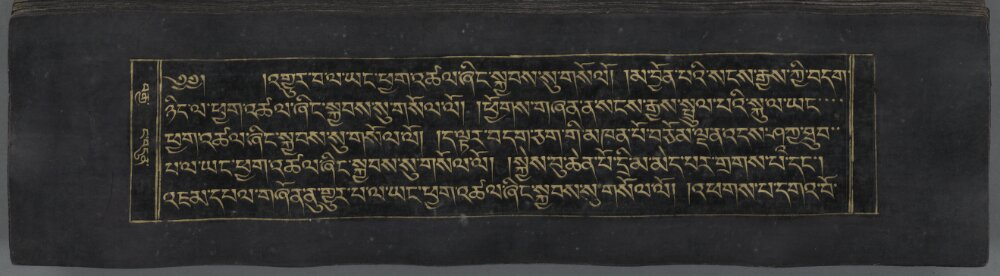 ༄༅། །འགྱུར་བ་ལ་ཡང་ཕྱག་འཚལ་ཞིང་སྐྱབས་སུ་གསོལ་ལོ། །མ་ཧྲོན་པའི་སངས་རྒྱས་ཀྱི་བདག་
ཉིད་ལ་ཕྱག་འཚལ་ཞིང་སྐྱབས་སུ་གསོལ་ལོ། །ཕྱོགས་གཞན་ན་སངས་རྒྱས་སྤྲུལ་པའི་སྐུ་ལ་ཡང་
ཕྱག་འཚལ་ཞིང་སྐྱབས་སུ་གསོལ་ལོ། །ད་ལྟར་བདག་ཅག་གི་མཁན་པོ་བཅོམ་ལྡན་འདས་ཤཱཀྱ་ཐུབ་
པ་ལ་ཡང་ཕྱག་འཚལ་ཞིང་སྐྱབས་སུ་གསོལ་ལོ། །སྐྱེས་བུ་ཆེན་པོ་དྲི་མ་མེད་པར་གྲགས་པ་དང་།
འཇམ་དཔལ་གཞོན་ནུ་གྱུར་པ་ལ་ཡང་ཕྱག་འཚལ་ཞིང་སྐྱབས་སུ་གསོལ་ལོ། །འཕགས་པ་དགའ་བོ་